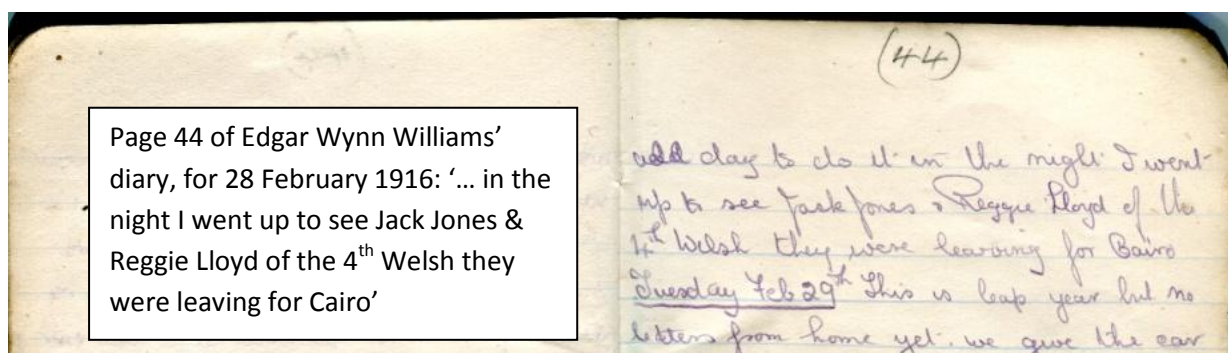 (44)
Page 44 of Edgar Wynn Williams’
diary, for 28 February 1916: ‘… in the
night I went up to see Jack Jones &
Reggie Lloyd of the 4th Welsh they
were leaving for Cairo’
day to do it in the night I went
up to see Jack Jones & Reggie Lloyd of the
4th Welsh they were leaving for Cairo
Tuesday Feb 29th This is leap year but no
letters from home yet. we give the ear